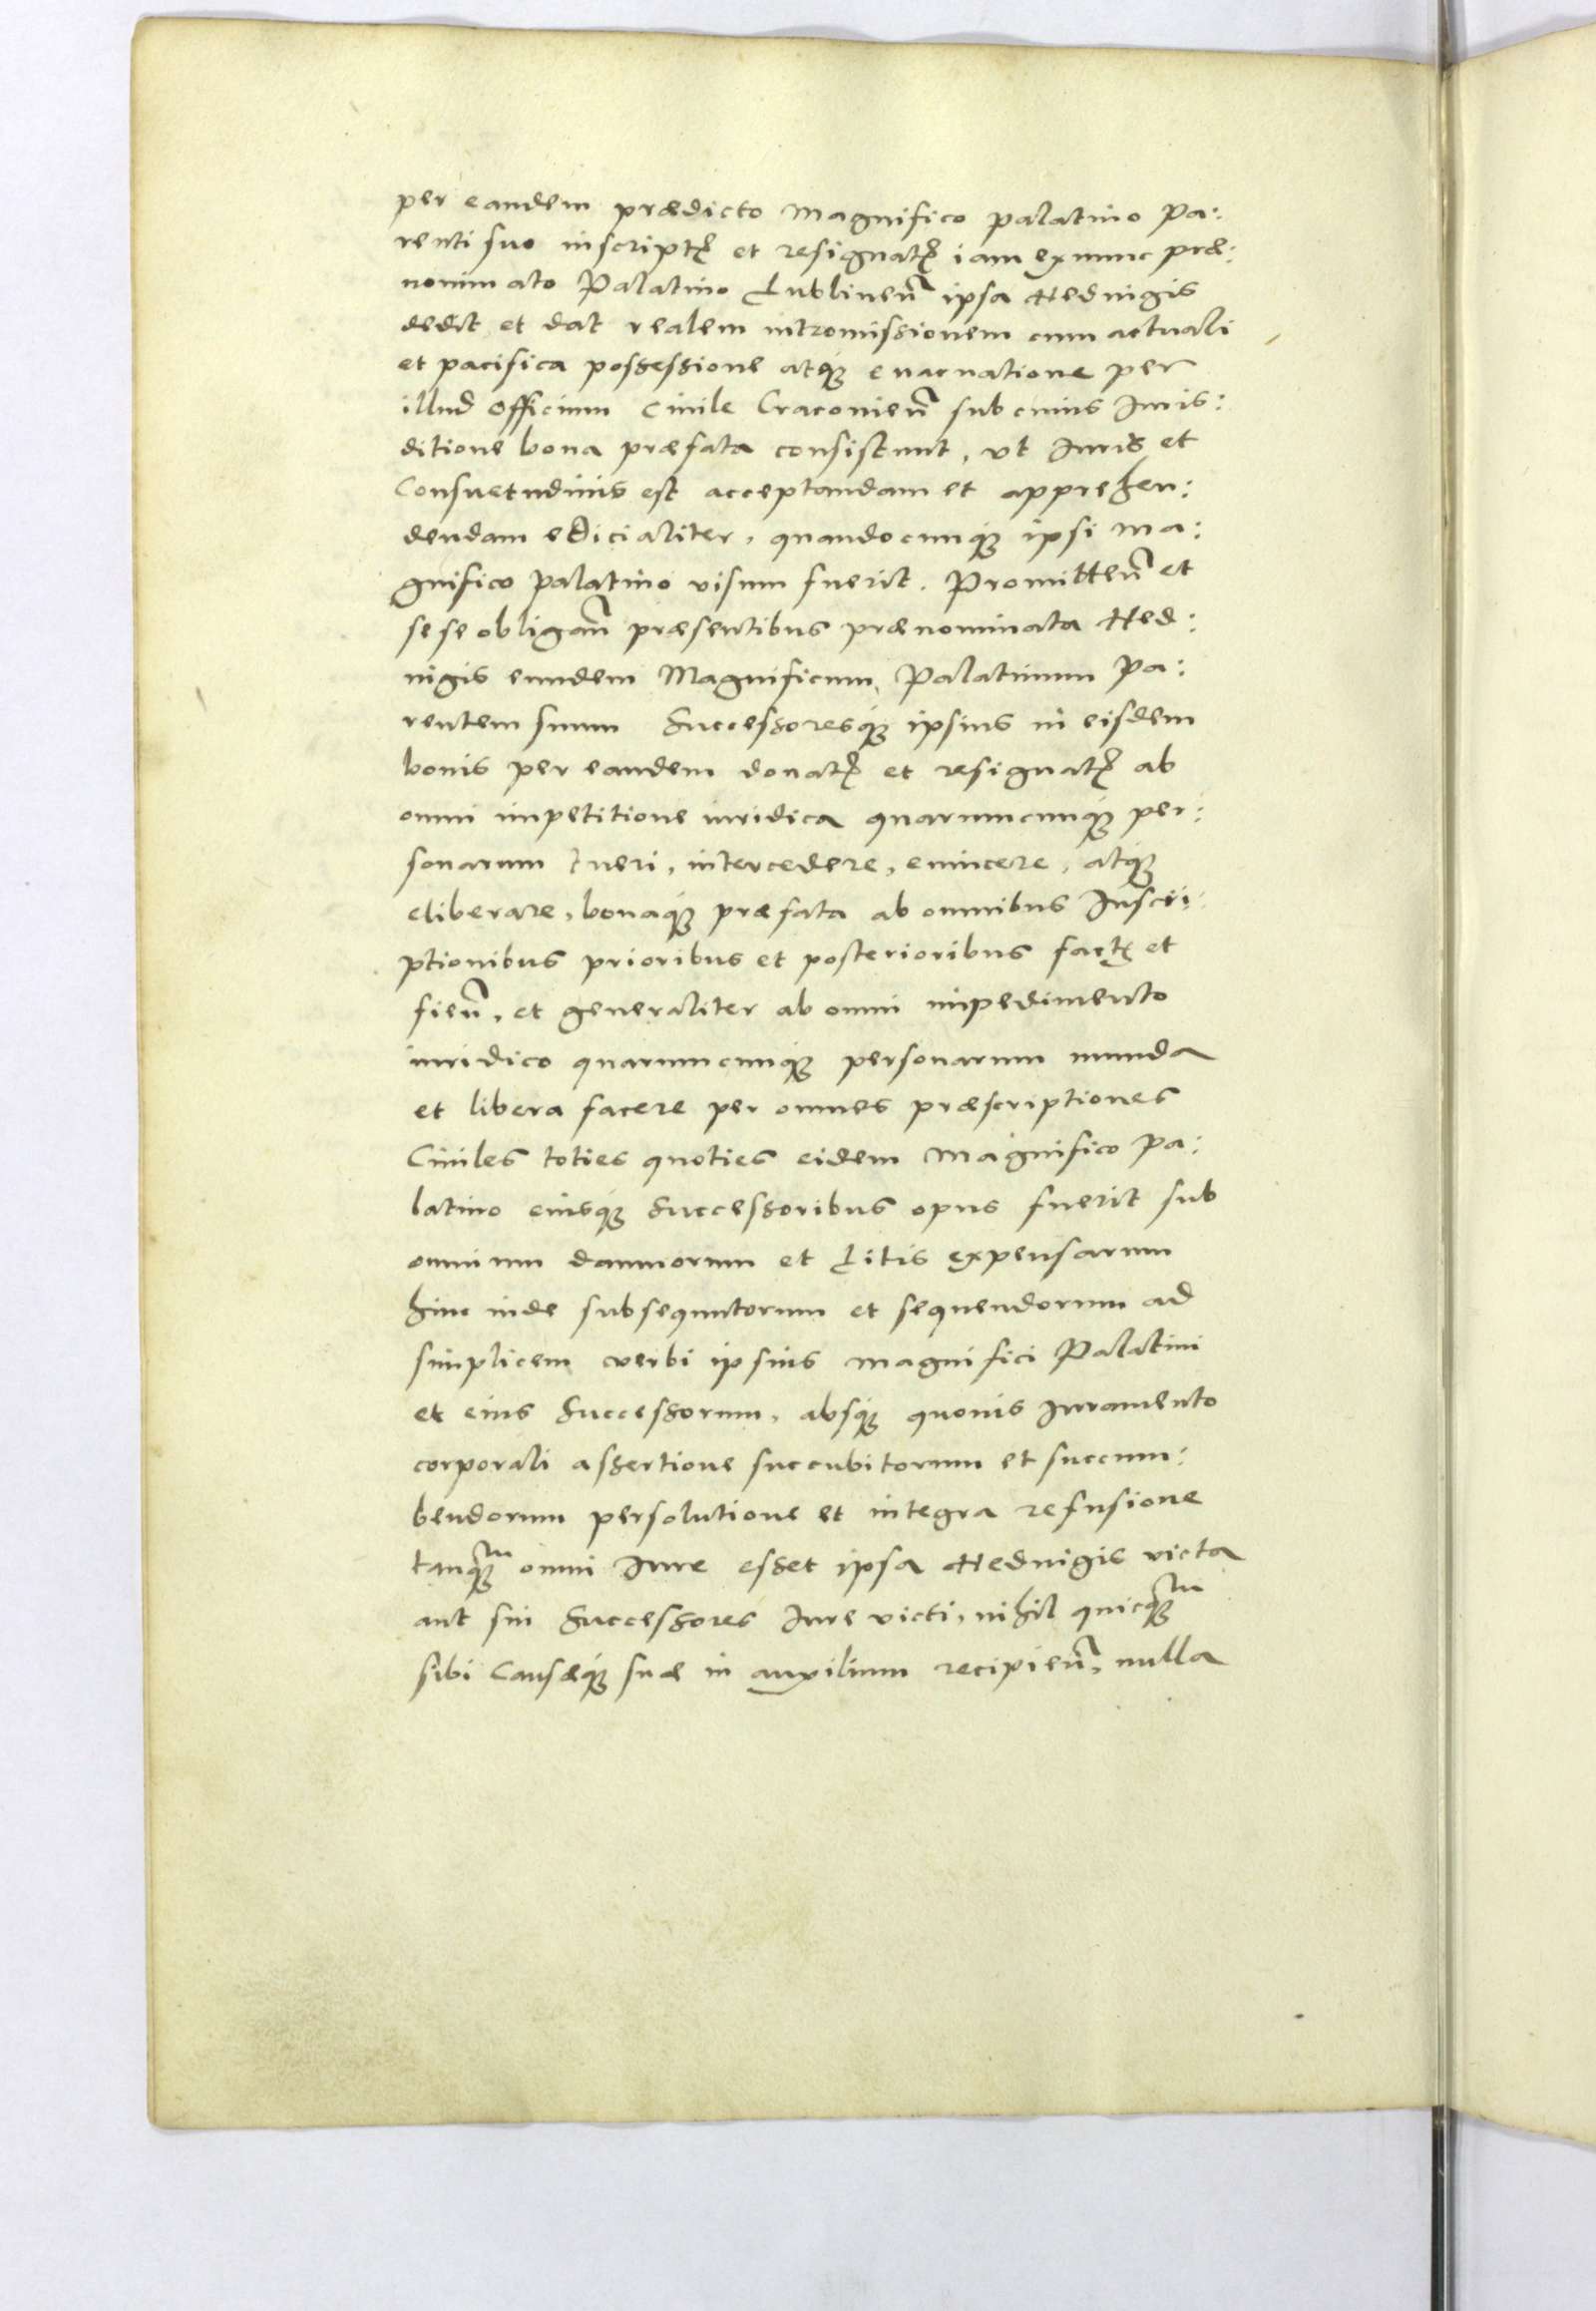 per eandem prædicto Magnifico palatino Pa:
renti suo inscriptꝭ et resignatꝭ iam ex nunc præ:
nominato Palatino Lublinen̄ ipsa Heduigis
dedit et dat realem intromissionem cum actuali
et pacifica possessione atqꝫ euacuatione per
illud Officium Ciuile Cracouien̄ sub cuius Iuris:
ditione bona præfata consistunt, vt Iuris et
Consuetudinis est acceptandam et apprehen:
dendam edicialiter, quandocunqꝫ ipsi Ma:
gnifico palatino visum fuerit. Promitten̄ et
sese obligan̄ præsentibus prænominata Hed:
uigis eundem Magnificum, Palatinum Pa:
rentem suum Successoresqꝫ ipsius in eisdem
bonis per eandem donatꝭ et resignatꝭ ab
omni impetitione iuridica quarumcunqꝫ per:
sonarum tueri, intercedere, euincere, atqꝫ
eliberare, bonaqꝫ præfata ab omnibus Inscri:
ptionibus prioribus et posterioribus factꝭ et
fien̄, et generaliter ab omni impedimento
iuridico quarumcunqꝫ personarum munda
et libera facere per omnes præscriptiones
Ciuiles toties quoties eidem Magnifico Pa:
latino eiusqꝫ Successoribus opus fuerit sub
omnium damnorum et Litis expensarum
hinc inde subsequutorum et sequendorum ad
simplicem verbi ipsius Magnifici Palatini
et eius Successorum, absqꝫ quouis Iuramento
corporali assertione succubitorum et succum:
bendorum persolutione et integra refusione
tanqꝫm omni Iure esset ipsa Heduigis victa
aut sui Successores Iure victi, nihil quicqꝫm
sibi Causæqꝫ suæ in auxilium recipien̄, nulla